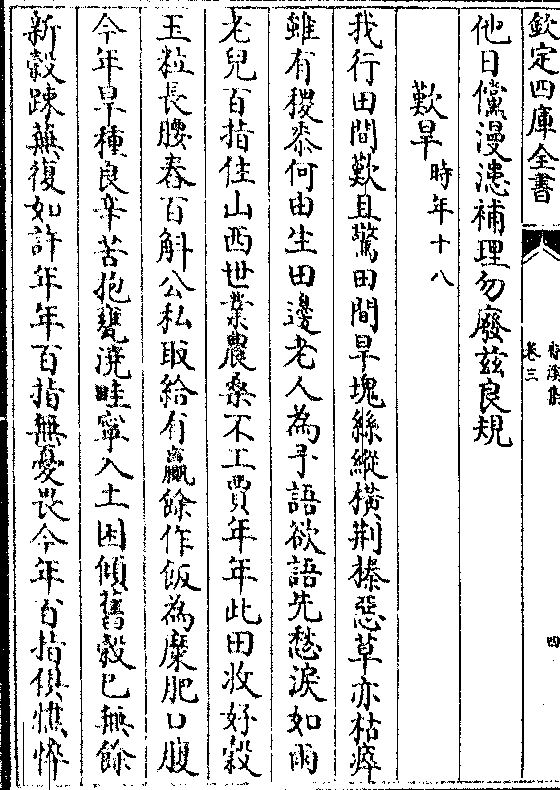 欽定四庫全書
卷三
四
他日儻漫漶補理勿廢茲良規
歎旱時年十八
我行田間歎且驚田間旱塊絲縱橫荆榛惡草亦枯瘁
雖有稷黍何由生田邊老人為予語欲語先愁淚如雨
老兒百指住山西世業農桑不工賈年年此田收好穀
玉粒長腰舂百斛公私取給有贏餘作飯為糜肥口腹
今年旱種良辛苦抱甕澆畦寧入土困傾舊穀已無餘
新穀踈蕪復如許年年百指無憂畏今年百指俱憔悴